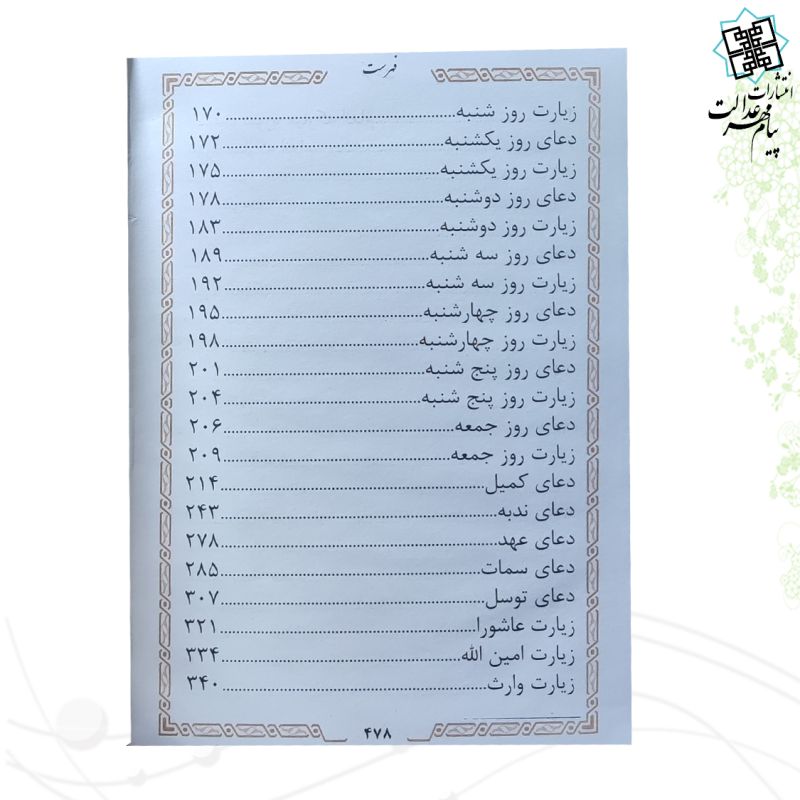 انتشارات
پیام مهر عدالت
فهرست
زیارت روز شنبه..............................۱۷۰
دعای روز یکشنبه..............................۱۷۲
زیارت روز یکشنبه..............................۱۷۵
دعای روز دوشنبه..............................۱۷۸
زیارت روز دوشنبه..............................۱۸۳
دعای روز سه شنبه..............................۱۸۹
زیارت روز سه شنبه..............................۱۹۲
دعای روز چهارشنبه..............................۱۹۵
زیارت روز چهارشنبه..............................۱۹۸
دعای روز پنج شنبه..............................۲۰۱
زیارت روز پنج شنبه..............................۲۰۴
دعای روز جمعه..............................۲۰۶
زیارت روز جمعه..............................۲۰۹
دعای کمیل..............................۲۱۴
دعای ندبه..............................۲۴۳
دعای عهد..............................۲۷۸
دعای سمات..............................۲۸۵
دعای توسل..............................۳۰۷
زیارت عاشورا..............................۳۲۱
زیارت امین الله..............................۳۳۴
زیارت وارث..............................۳۴۰
۴۷۸